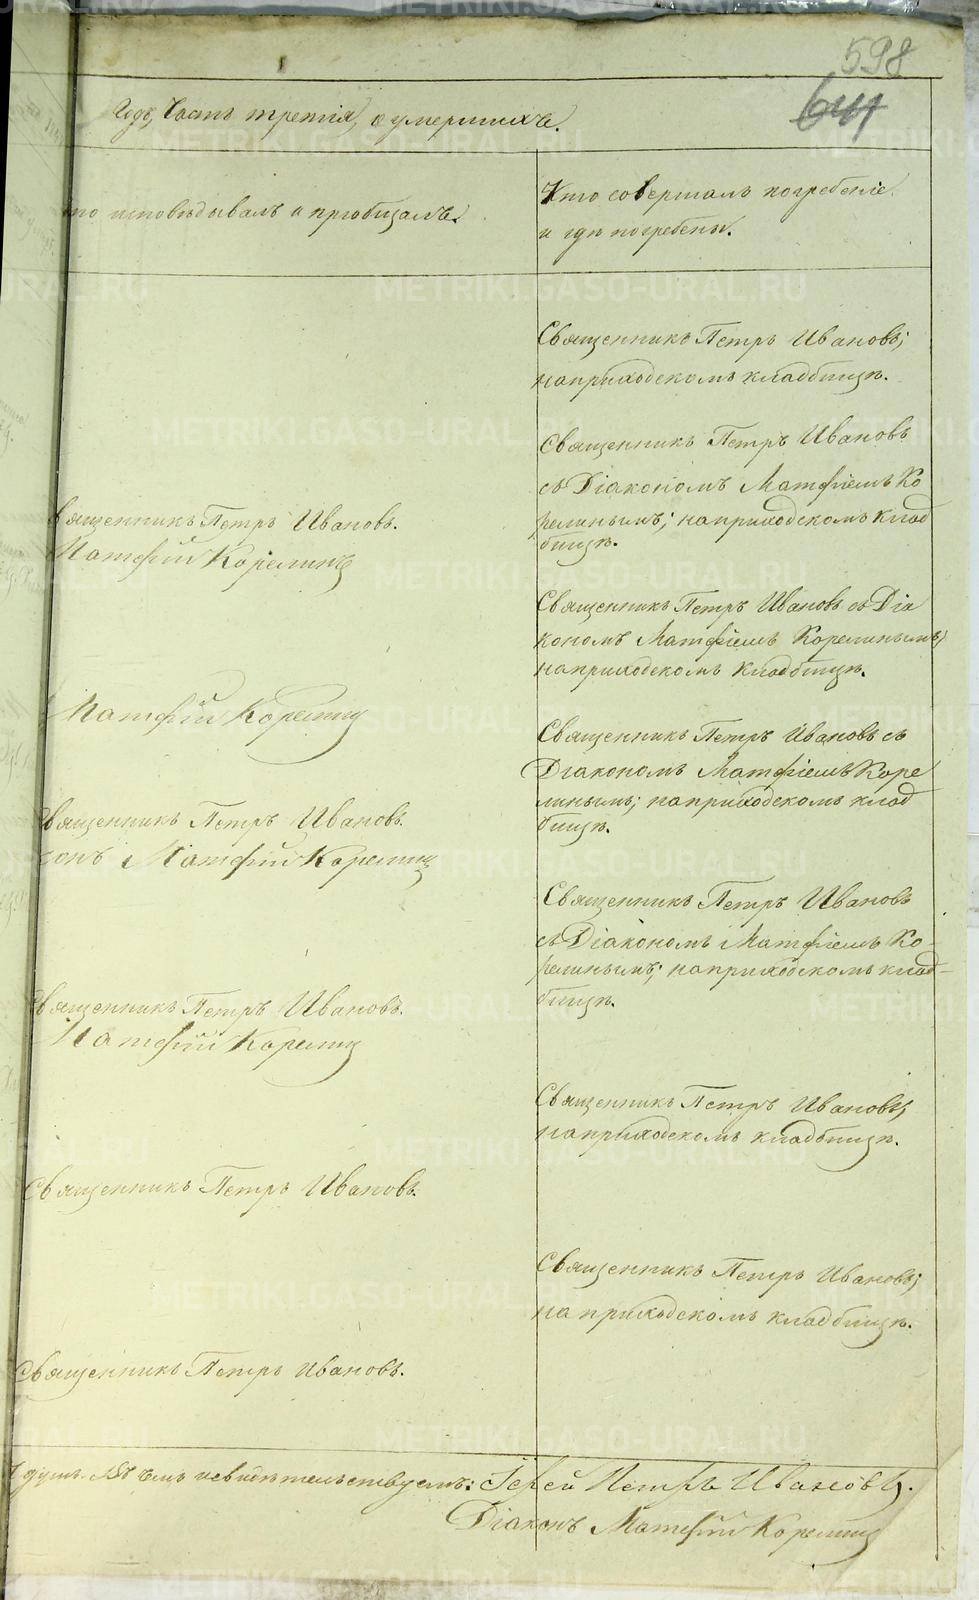 598
641
Годъ, Часть третія, о умершихъ.
то исповѣдывалъ и пріобщалъ.
Кто совершалъ погребеніе
и гдѣ погребены.
Священникъ Петръ Ивановъ;
на приходскомъ кладбищѣ.
Священникъ Петръ Ивановъ
съ Діакономъ Матфіемъ Ко
релинымъ; на приходскомъ клад
бищѣ.
вященникъ Петръ Ивановъ.
Матфій Корелинъ
Священникъ Петръ Ивановъ съ Діа
кономъ Матфіемъ Корелинымъ;
на приходскомъ кладбищѣ.
Матфій Корелинъ
Священникъ Петръ Ивановъ съ
Діакономъ Матфіемъ Коре
линымъ; на приходскомъ клад
бищѣ.
Священникъ Петръ Ивановъ.
конъ Матфій Корелинъ
Священникъ Петръ Ивановъ
съ Діакономъ Матфіемъ Ко-
релинымъ; на приходскомъ клад-
бищѣ.
Священникъ Петръ Ивановъ.
Матфій Корелинъ
Священникъ Петръ Ивановъ;
на приходскомъ кладбищѣ.
Священникъ Петръ Ивановъ.
Священникъ Петръ Ивановъ;
на приходскомъ кладбищѣ.
Священникъ Петръ Ивановъ.
душъ. Въ чемъ и свидѣтельствуемъ: Іерей Петръ Ивановъ.
Діаконъ Матфій Корелинъ
METRIKI.GASO-URAL.RU